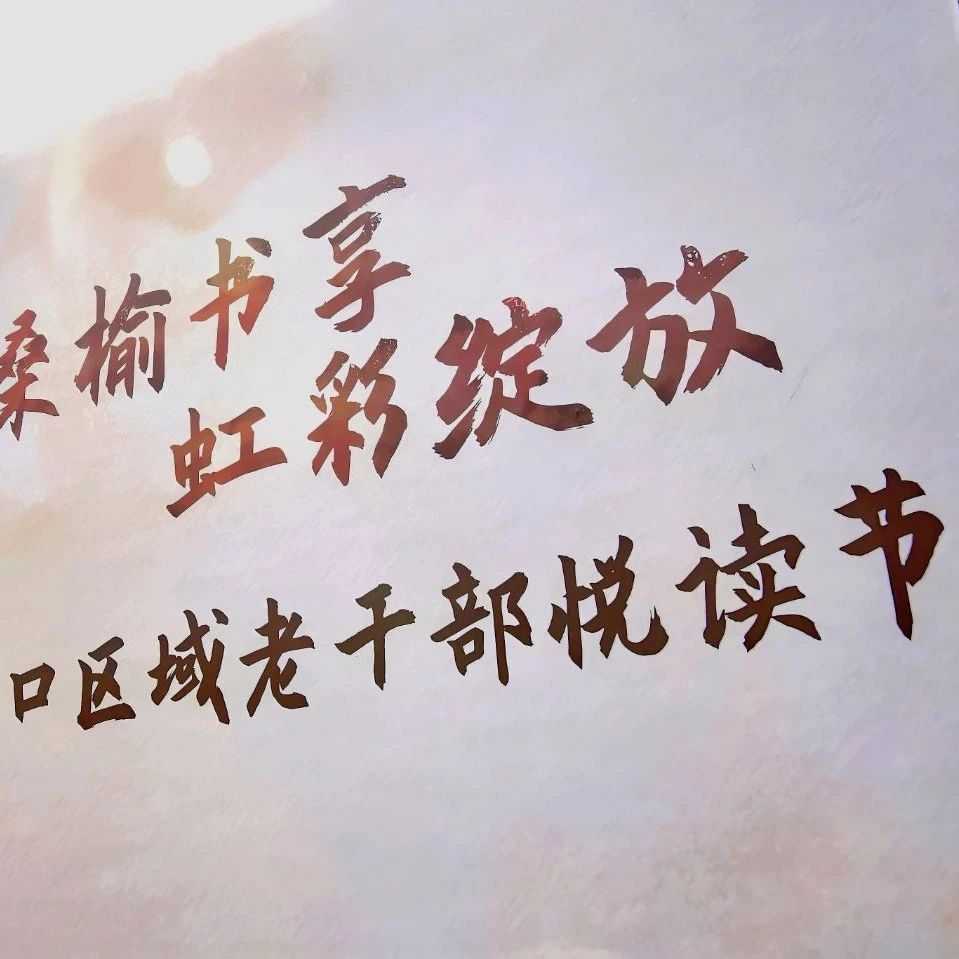 桑榆书享
虹彩绽放
口区域老干部悦读节